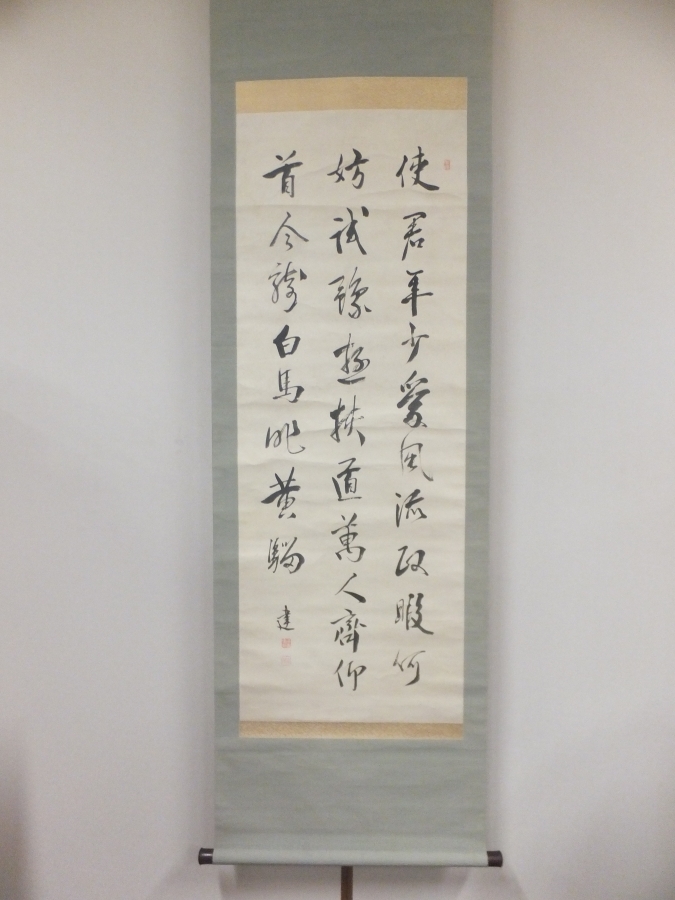 使君年少愛風流政暇何
妨試豫遊挾道萬人齊仰
首今騎白馬昨黄騮
建